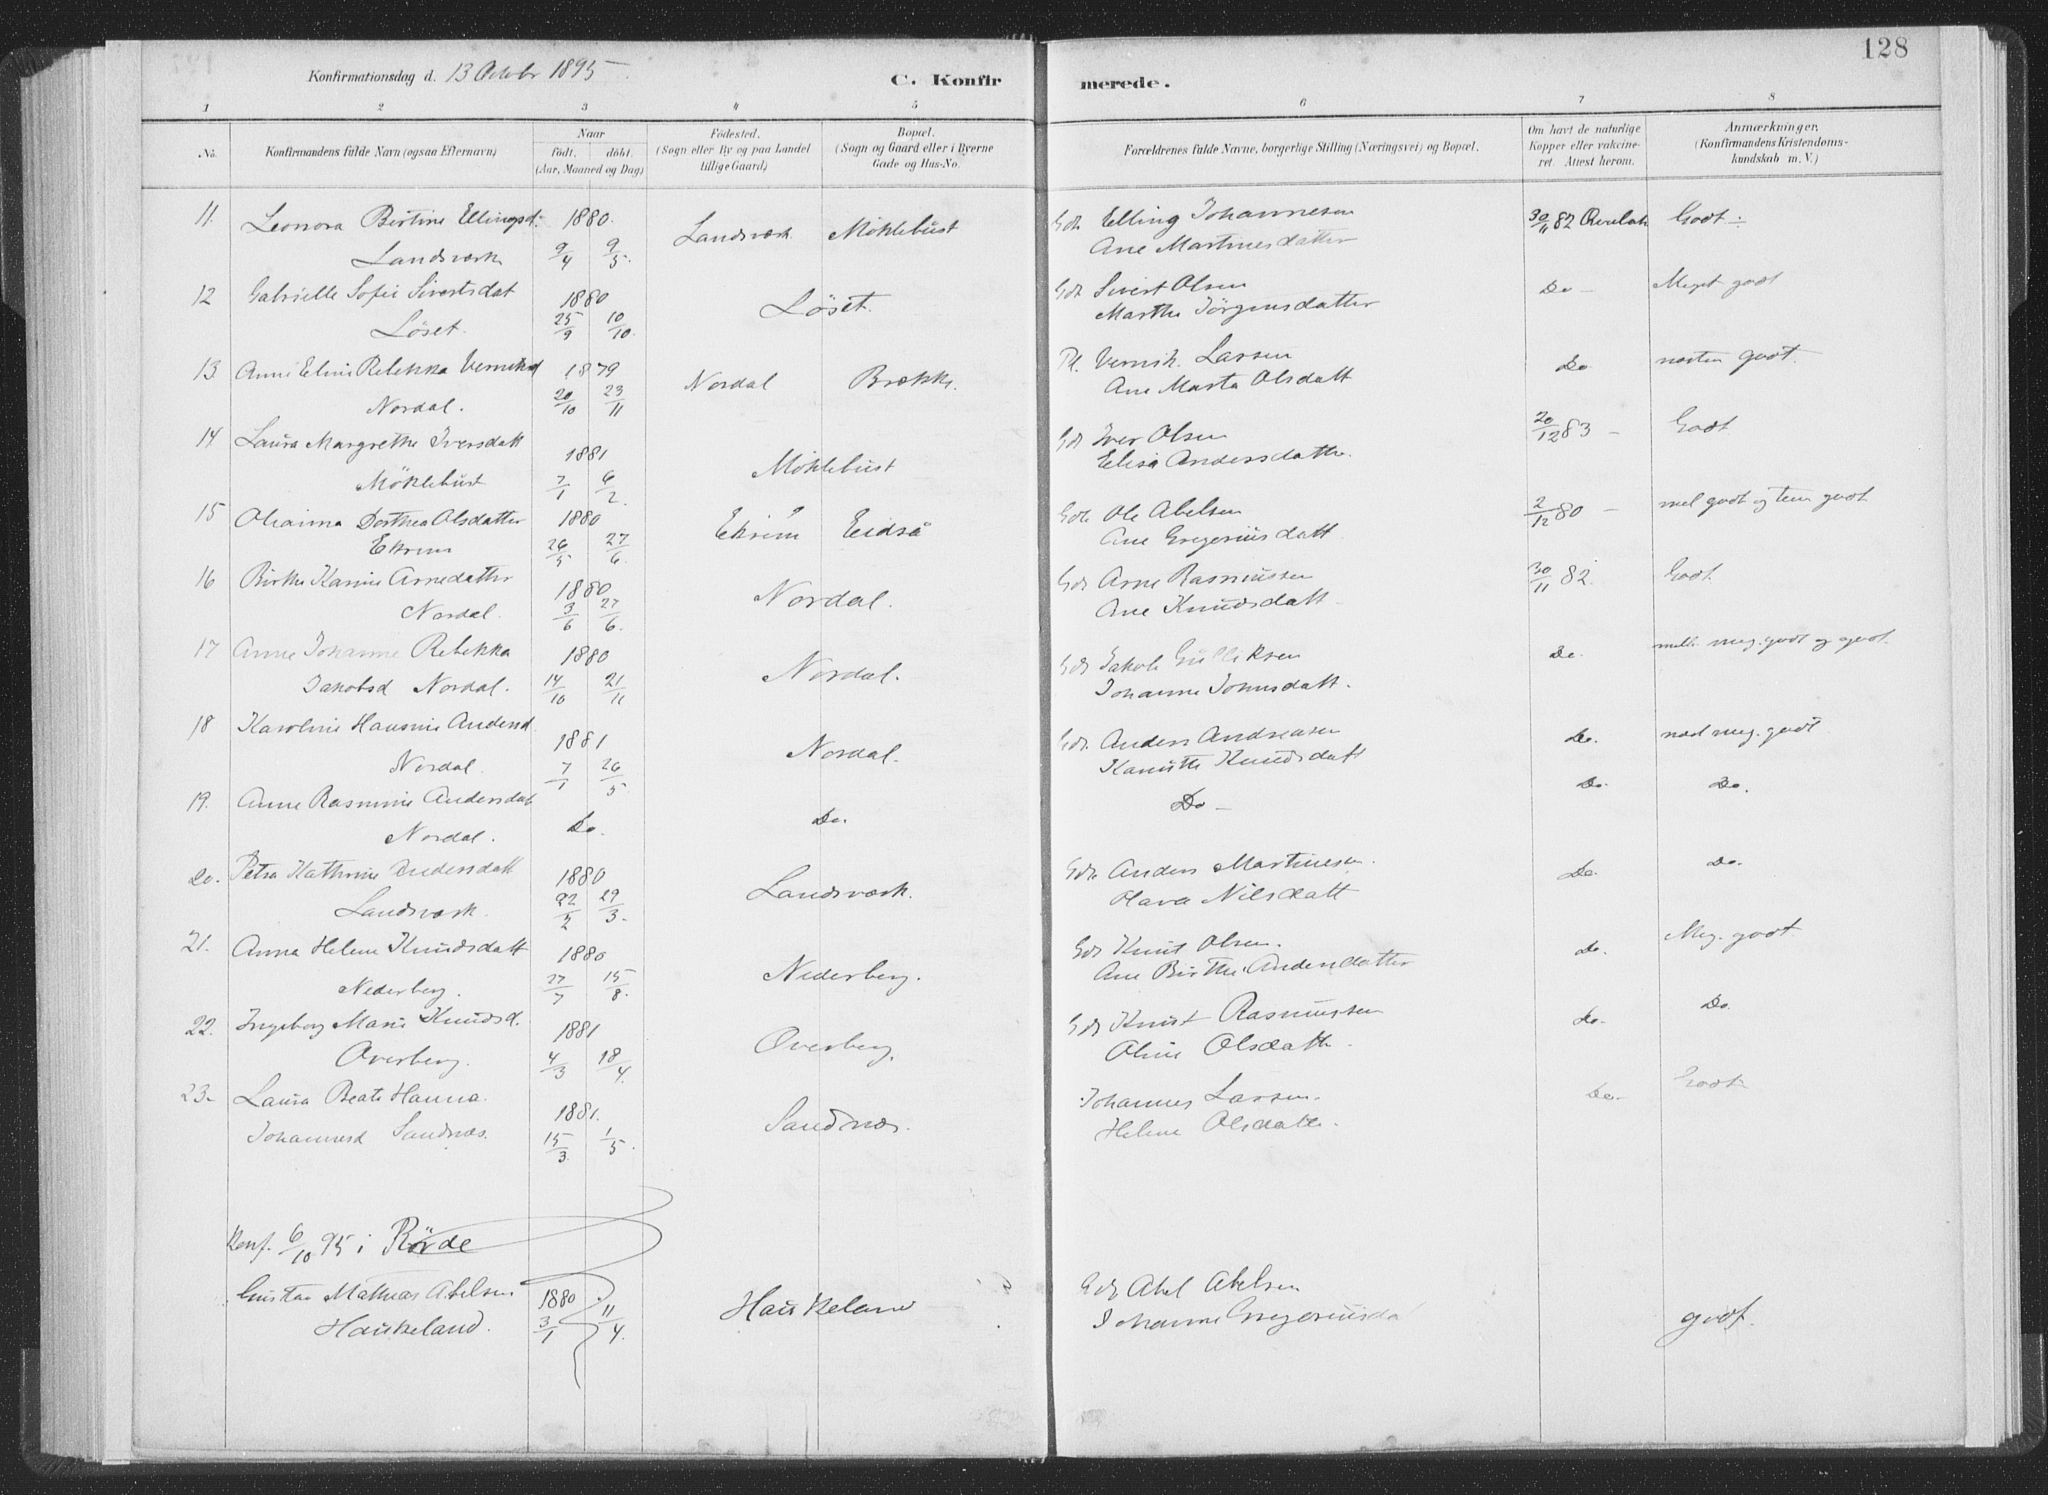 128
Konfirmationsdag d. 13 Octobr 1895.
C. Konfirmerede.
1 2 3 4 5 6 7 8
No. Konfirmandens fulde Navn (ogsaa Efternavn) Naar født. døbt. (Aar, Maaned og Dag) Fødested. (Sogn eller By og paa Landet tillige Gaard) Bopæl. (Sogn og Gaard eller i Byerne Gade og Hus-No. Forældrenes fulde Navne, borgerlige Stilling (Næringsvei) og Bopæl. Om havt de naturlige Kopper eller vakcineret. Attest herom. Anmærkninger. (Konfirmandens Kristendomskundskab m. V.)
11. Leonora Bertine Ellingsd. 1880. Landsværk Möklebust Gdr. Elling Johannesen 30/11 82 Godt
Landsværk 9/4 9/5. Ane Martinesdatter
12 Gabrielle Sofie Sivertsdat 1880 Löset. Gdr. Sivert Olsen Do - Meget godt
Löset. 25/9 10/10. Marthe Jörgensdatter
13 Anne Eline Rebekka 1879 Nordal Brække. Pl. Larsen Do næsten godt.
Nordal. 20/10 23/11 Ane Marta Olsdatt
14 Laura Margrethe Iversdatt 1881 Möklebust Gdr Iver Olsen 20/12 83 - Godt
Möklebust 7/1 6/2. Elisa Andersdatter.
15 Dorthea Olsdatter 1880 Ekrem Eidså Gdr. Ole Abelsen 2/12 80 - mel godt og tem godt
Ekrem 26/5 27/6. Ane Gregoriusdatt
16 Birthe Karine Arnedatter 1880 Nordal. Gdr Arne Rasmussen 30/11 82. Godt
Nordal. 3/6 27/6. Ane Knudsdatt
17 Anne Johanne Rebekka 1880 Nordal. Gdr Jakob Gulliksen Do. mell. meg. godt og godt.
Jakobsd Nordal. 14/10 21/11 Johanne Johnsdatt.
18 Karoline Andersd 1881 Nordal. Gdr. Anders Andreasen Do. meg. godt
Nordal. 7/1 26/5. Knudsdatt
19. Anne Rasmine Andersdat Do. Do. Do - Do. Do.
Nordal.
20. Petra Kathrine Andersdatt 1880 Landsværk. Gdr. Anders Martinesen. Do. Do.
Landsværk. 22/2 29/3. Olava Nilsdatt
21. Anna Helene Knudsdatt 1880 Nederberg. Gdr Knut Olsen. Do. Meg. godt
Nederberg. 27/7 15/8. Ane Birthe Andersdatter
22. Ingeborg Marie Knudsd. 1881 Overberg. Gdr Knut Rasmussen Do. Do.
Overberg. 4/3 18/4. Oline Olsdatt.
23. Laura Beate Hanna 1881. Sandnæs. Johannes Larsen. Do. Godt
Johannesd Sandnæs. 15/3 1/5. Helene Olsdatt.
Konf. 6/10 95 i Rövde
Gustav Mathias Abelsen 1880 Haukeland Gdr Abel Abelsen
Haukeland. 3/1 11/4. Johanne Gregoriusda godt.